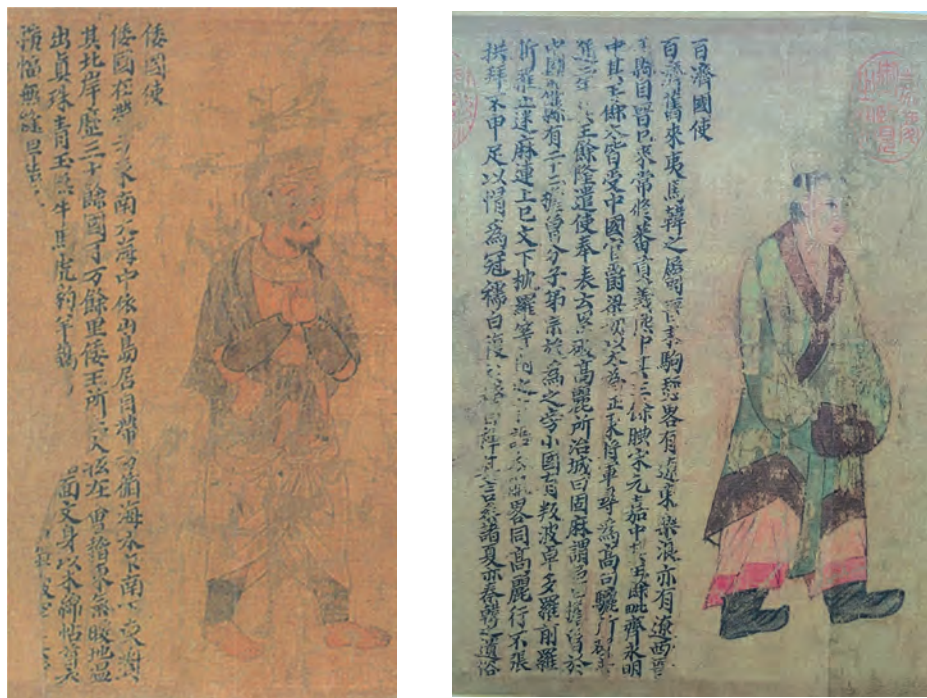 倭國使
倭國在帶方東南大海中依山島居自帶方循海水乍南乍東對
其北岸歷三十餘國可万餘里倭王所 大抵在會稽東氣暖地温
出真珠青玉無牛馬虎豹羊鵲 面文身以木綿帖首衣
橫幅無縫但結
百濟國使
百濟舊來夷馬韓之屬晋末駒驪畧有遼東樂浪亦有遼西晋
平縣自晋已來常修蕃貢義熙中其王餘腆宋元嘉中其王餘毗齊永明
中其王餘太皆受中國官爵梁初以太為征東將軍尋為高句驪所破
通二年其王餘隆遣使奉表云累破高麗所治城曰固麻謂邑曰檐魯於
中國郡縣有二十二檐魯分子弟宗族為之旁小國有叛波卓多羅前羅
斯羅止迷麻連上巳文下枕羅等附之言語衣服畧同高麗行不張
拱拜不申足以帽為冠襦曰複衫袴曰褌其言參諸夏亦秦韓之遺俗